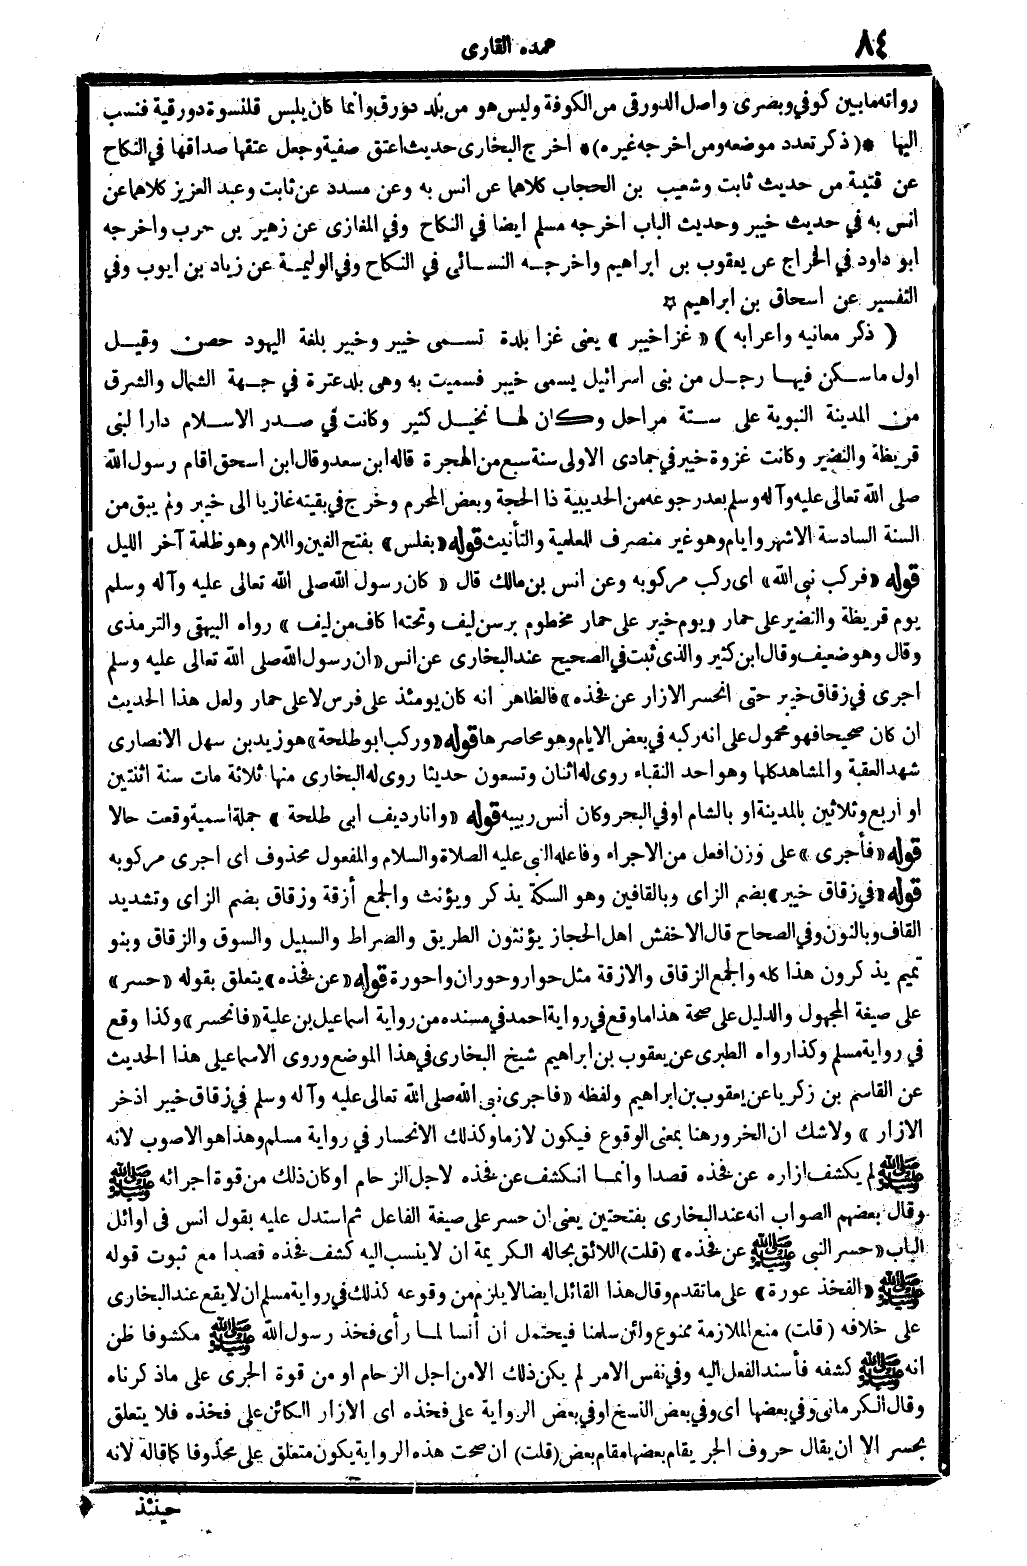 ٨٤
عمده القارى
رواته مابين كوفي وبصرى واصل الدورقى من الكوفة وليس هو من بلد دورق وانما كان يلبس قلنسوة دورقية فنسب
اليها *(ذكر تعدد موضعه ومن اخرجه غيره)* اخرج البخارى حديث اعتق صفية وجعل عتقها صداقها في النكاح
عن قتيبة من حديث ثابت وشعيب بن الحجاب كلاهما عن انس به وعن مسدد عن ثابت وعبد العزيز كلاهما عن
انس به في حديث خيبر وحديث الباب اخرجه مسلم ايضا في النكاح وفي المغازى عن زهير بن حرب واخرجه
ابو داود في الخراج عن يعقوب بن ابراهيم واخرجـه النسائى في النكاح وفي الوليمـة عن زياد بن ايوب وفي
التفسير عن اسحاق بن ابراهيم *
( ذكر معانيه واعرابه ) « غزا خيبر » يعنى غزا بلدة تسـمى خيبر وخيبر بلغة اليهود حصن وقيـل
اول ما سـكن فيهـا رجـل من بنى اسرائيل يسمى خيبر فسميت به وهى بلد عنزة في جـهة الشمال والشرق
من المدينة النبوية على سـتة مراحل وكان لهـا نخيـل كثير وكانت في صـدر الاسـلام دارا لبنى
قريظة والنضير وكانت غزوة خيبر في جمادى الاولى سنة سبع من الهجرة قاله ابن سعد وقال ابن اسحق اقام رسول الله
صلى الله تعالى عليه وآله وسلم بعد رجوعه من الحديبية ذا الحجة وبعض المحرم وخرج في بقيته غازيا الى خيبر ولم يبق من
السنة السادسة الا شهر وايام وهو غير منصرف للعلمية والتأنيث قوله «بغلس» بفتح الغين واللام وهو ظلمة آخر الليل
قوله «فركب نبى الله» اى ركب مركوبه وعن انس بن مالك قال « كان رسول الله صلى الله تعالى عليه وآله وسلم
يوم قريظة والنضير على حمار ويوم خيبر على حمار مخطوم برسن ليف وتحته اكاف من ليف » رواه البيهقى والترمذى
وقال وهو ضعيف وقال ابن كثير والذى ثبت في الصحيح عند البخارى عن انس «ان رسول الله صلى الله تعالى عليه وسلم
اجرى في زقاق خيبر حتى انحسر الازار عن فخذه» فالظاهر انه كان يومئذ على فرس لا على حمار ولعل هذا الحديث
ان كان صحيحا فهو محمول على انه ركبه في بعض الايام وهو محاصرها قوله «وركب ابو طلحة» هو زيد بن سهل الانصارى
شهد العقبة والمشاهد كلها وهو احد النقباء روى له اثنان وتسعون حديثا روى له البخارى منها ثلاثة مات سنة اثنتين
او اربع وثلاثين بالمدينة او بالشام او في البحر وكان أنس ربيبه قوله «وانا رديف ابى طلحة » جملة اسمية وقعت حالا
قوله «فأجرى» على وزن افعل من الاجراء وفاعله النبى عليه الصلاة والسلام والمفعول محذوف اى اجرى مركوبه
قوله «في زقاق خيبر» بضم الزاى وبالقافين وهو السكة يذكر ويؤنث والجمع أزقة وزقاق بضم الزاى وتشديد
القاف وبالنون وفي الصحاح قال الاخفش اهل الحجاز يؤنثون الطريق والصراط والسبيل والسوق والزقاق وبنو
تميم يذكرون هذا كله والجمع الزقاق والازقة مثل حوار وحوران واحورة قوله «عن فخذه» يتعلق بقوله «حسر»
على صيغة المجهول والدليل على صحة هذا ما وقع في رواية احمد في مسنده من رواية اسماعيل بن علية «فانحسر» وكذا وقع
في رواية مسلم وكذا رواه الطبرى عن يعقوب بن ابراهيم شيخ البخارى في هذا الموضع وروى الاسماعيلى هذا الحديث
عن القاسم بن زكريا عن يعقوب بن ابراهيم ولفظه «فاجرى نبى الله صلى الله تعالى عليه وآله وسلم في زقاق خيبر اذ خر
الازار » ولا شك ان الخرور هنا بمعنى الوقوع فيكون لازما وكذلك الانحسار في رواية مسلم وهذا هو الاصوب لانه
ﷺ لم يكشف ازاره عن فخذه قصدا وانمـا انـكشف عن فخذه لاجل الزحام او كان ذلك من قوة اجرائه ﷺ
وقال بعضهم الصواب انه عند البخارى بفتحتين يعنى ان حسر على صيغة الفاعل ثم استدل عليه بقول انس فى اوائل
الباب «حسر النبى ﷺ عن فخذه» (قلت) اللائق بحاله الكريمة ان لا ينسب اليه كشف فخذه قصدا مع ثبوت قوله
ﷺ «الفخذ عورة» على ما تقدم وقال هذا القائل ايضا لا يلزم من وقوعه كذلك في رواية مسلم ان لا يقع عند البخارى
على خلافه (قلت) منع الملازمة ممنوع ولئن سلمنا فيحتمل ان أنسا لمـا رأى فخذ رسول الله ﷺ مكشوفا ظن
انه ﷺ كشفه فأسند الفعل اليه وفي نفس الامر لم يكن ذلك الا من اجل الزحام او من قوة الجرى على ما ذكرناه
وقال الكرمانى وفي بعضها اى وفي بعض النسخ او في بعض الرواية على فخذه اى الازار الكائن على فخذه فلا يتعلق
بحسر الا ان يقال حروف الجر يقام بعضها مقام بعض (قلت) ان صحت هذه الرواية يكون متعلق على محذوفا كما قاله لانه
حينئذ